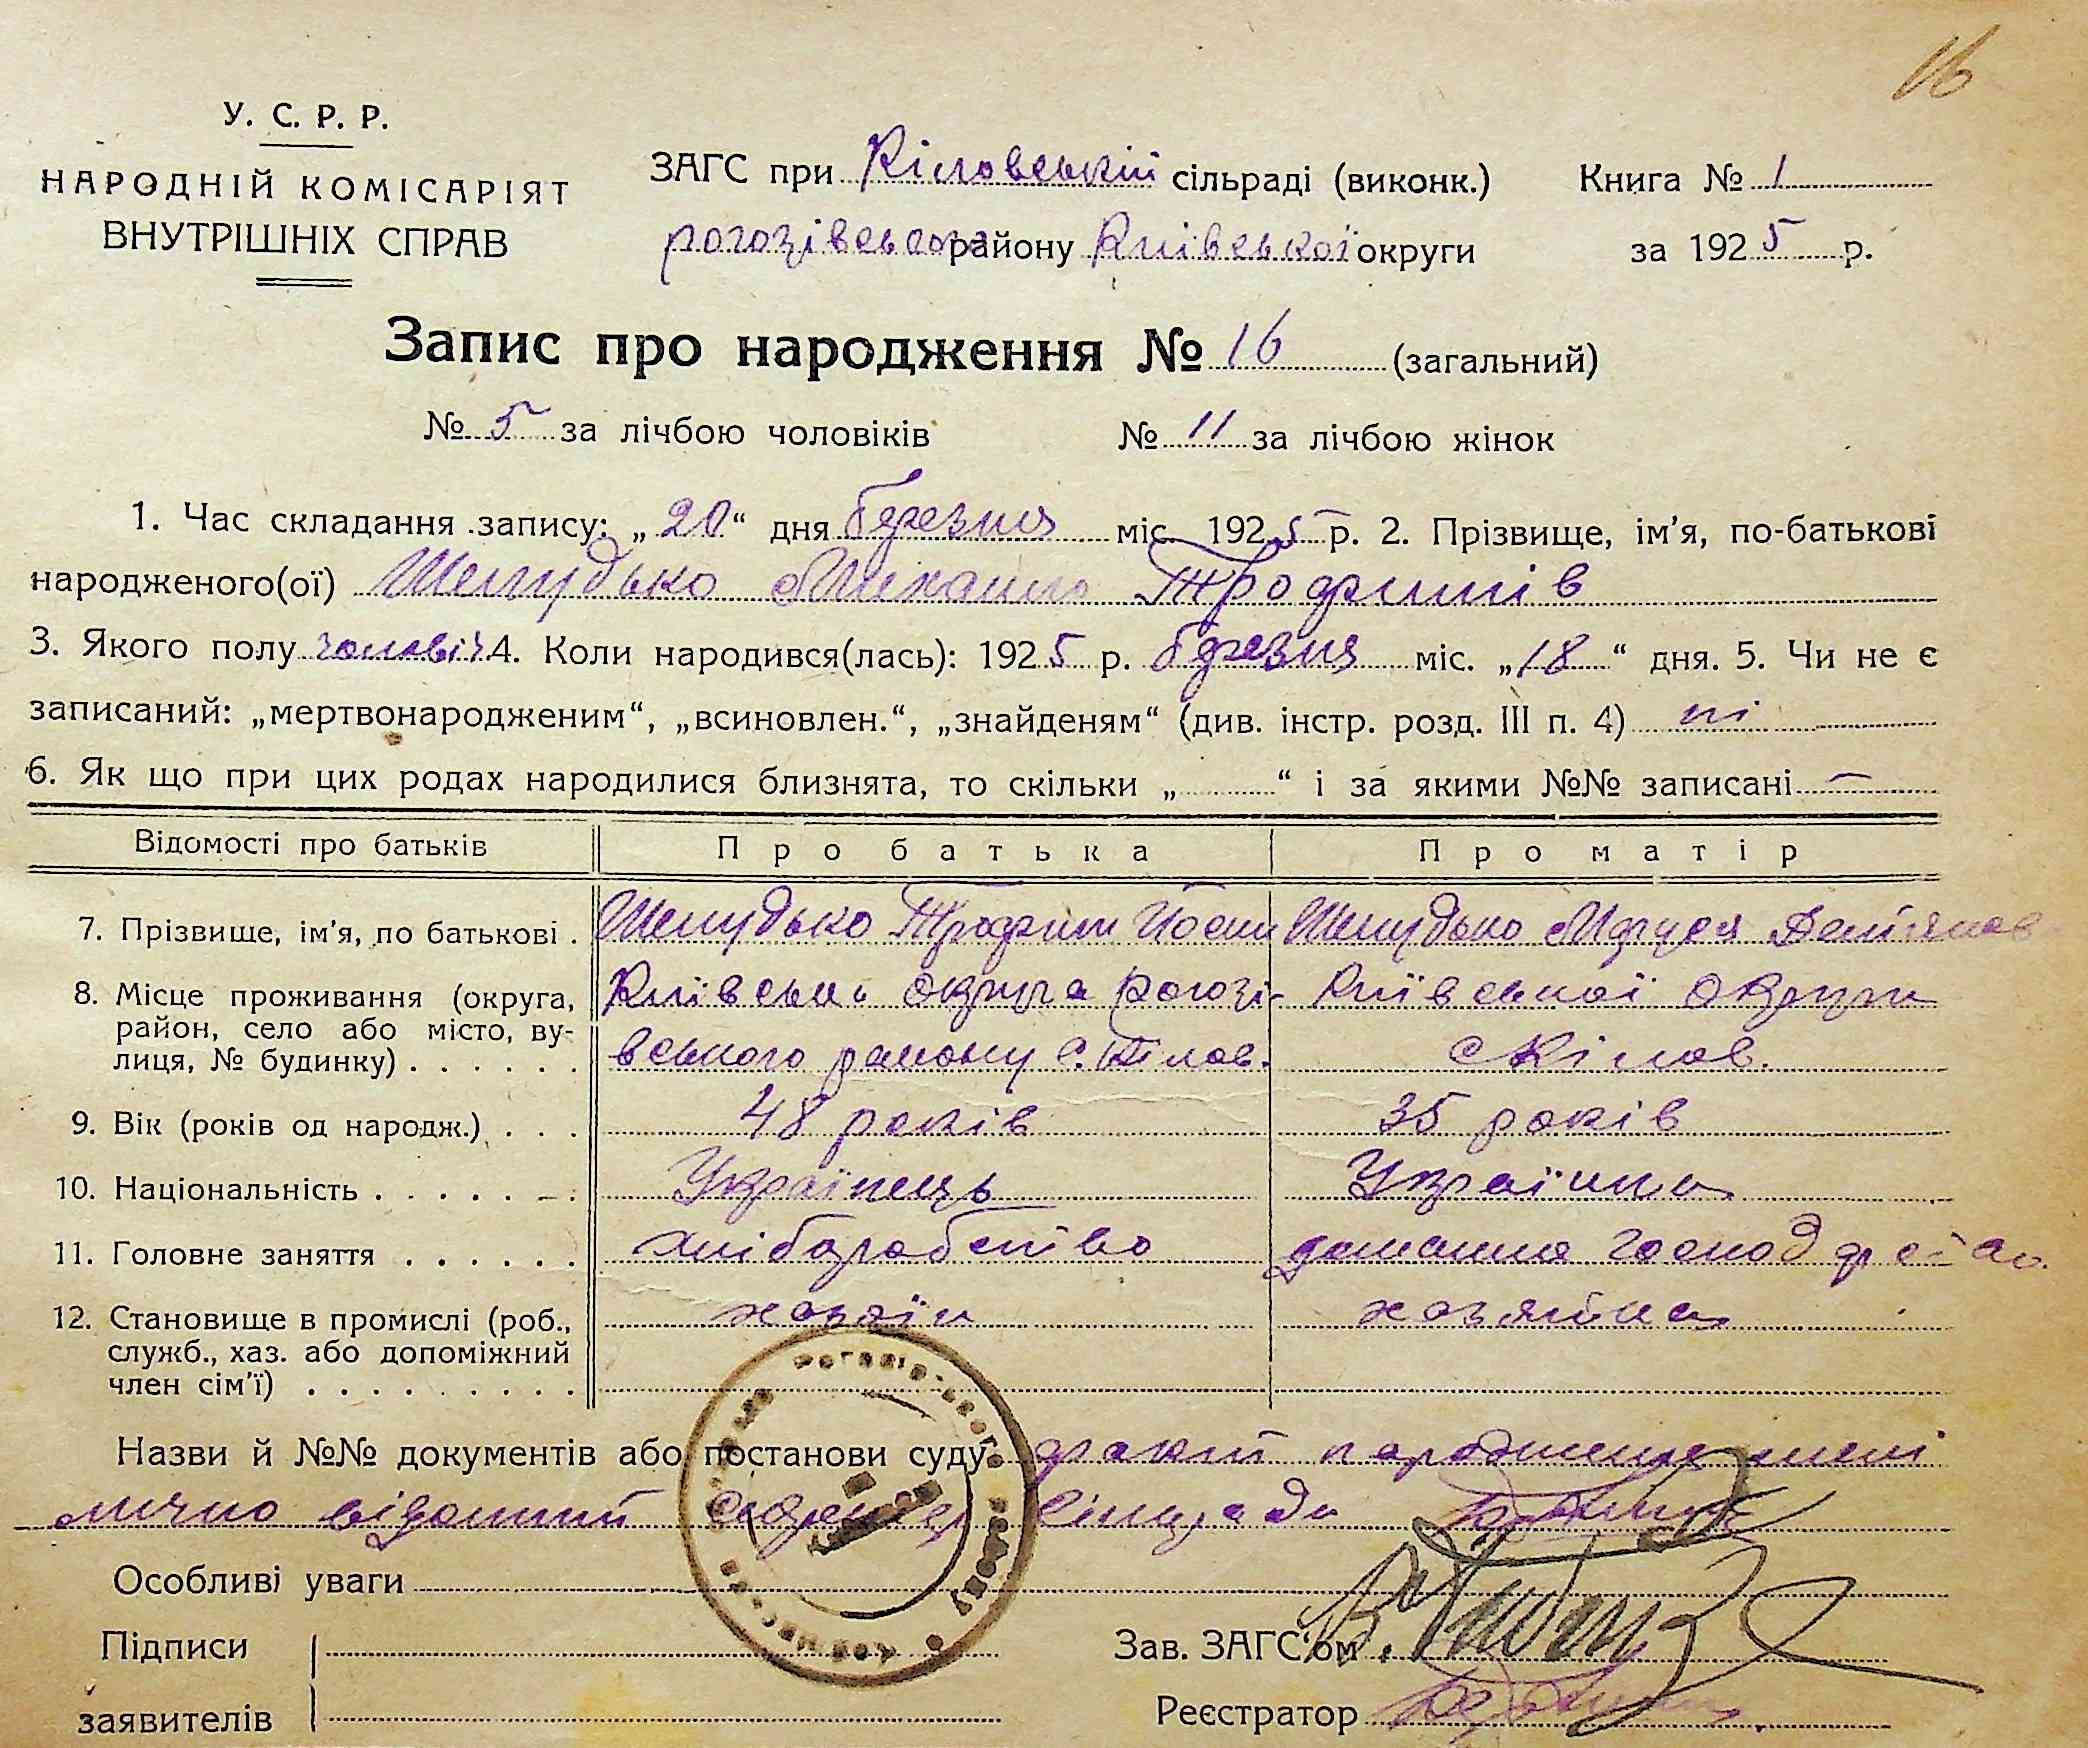 16
У. С. Р. Р.
НАРОДНІЙ КОМІСАРІЯТ
ВНУТРІШНІХ СПРАВ
ЗАГС при Кіловській сільраді (виконк.)
Книга № 1
рогозівського району Київської округи
за 1925 р.
Запис про народження № 16 (загальний)
№ 5 за лічбою чоловіків № 11 за лічбою жінок
1. Час складання запису: „20“ дня березня міс. 1925 р. 2. Прізвище, ім'я, по-батькові
народженого(ої) Шелудько Михайло Трофимів
3. Якого полу чоловіч 4. Коли народився(лась): 1925 р. березня міс. „18“ дня. 5. Чи не є
записаний: „мертвонародженим“, „всиновлен.“, „знайденям“ (див. інстр. розд. III п. 4) ні
6. Як що при цих родах народилися близнята, то скільки „ “ і за якими №№ записані —
Відомості про батьків Про батька Про матір
7. Прізвище, ім'я, по батькові . Шелудько Трофим Йоси Шелудько Маруся Дем'янов
8. Місце проживання (округа, район, село або місто, ву-лиця, № будинку) . . . . . .
Київська округа Рогозі-
вського району с. Кілов.
Київської округи
с Кілов.
9. Вік (років од народж.) . . . 48 років 35 років
10. Національність . . . . . . Українець Українка
11. Головне заняття . . . . . . хліборобство домашнє
12. Становище в промислі (роб., служб., хаз. або допоміжний член сім'ї) . . . . . . . . .
хозяїн хозяйка
Назви й №№ документів або постанови суду факт народження мені
лично відомий секретар сільради
Особливі уваги
Підписи
заявителів
Зав. ЗАГС'ом
Реєстратор